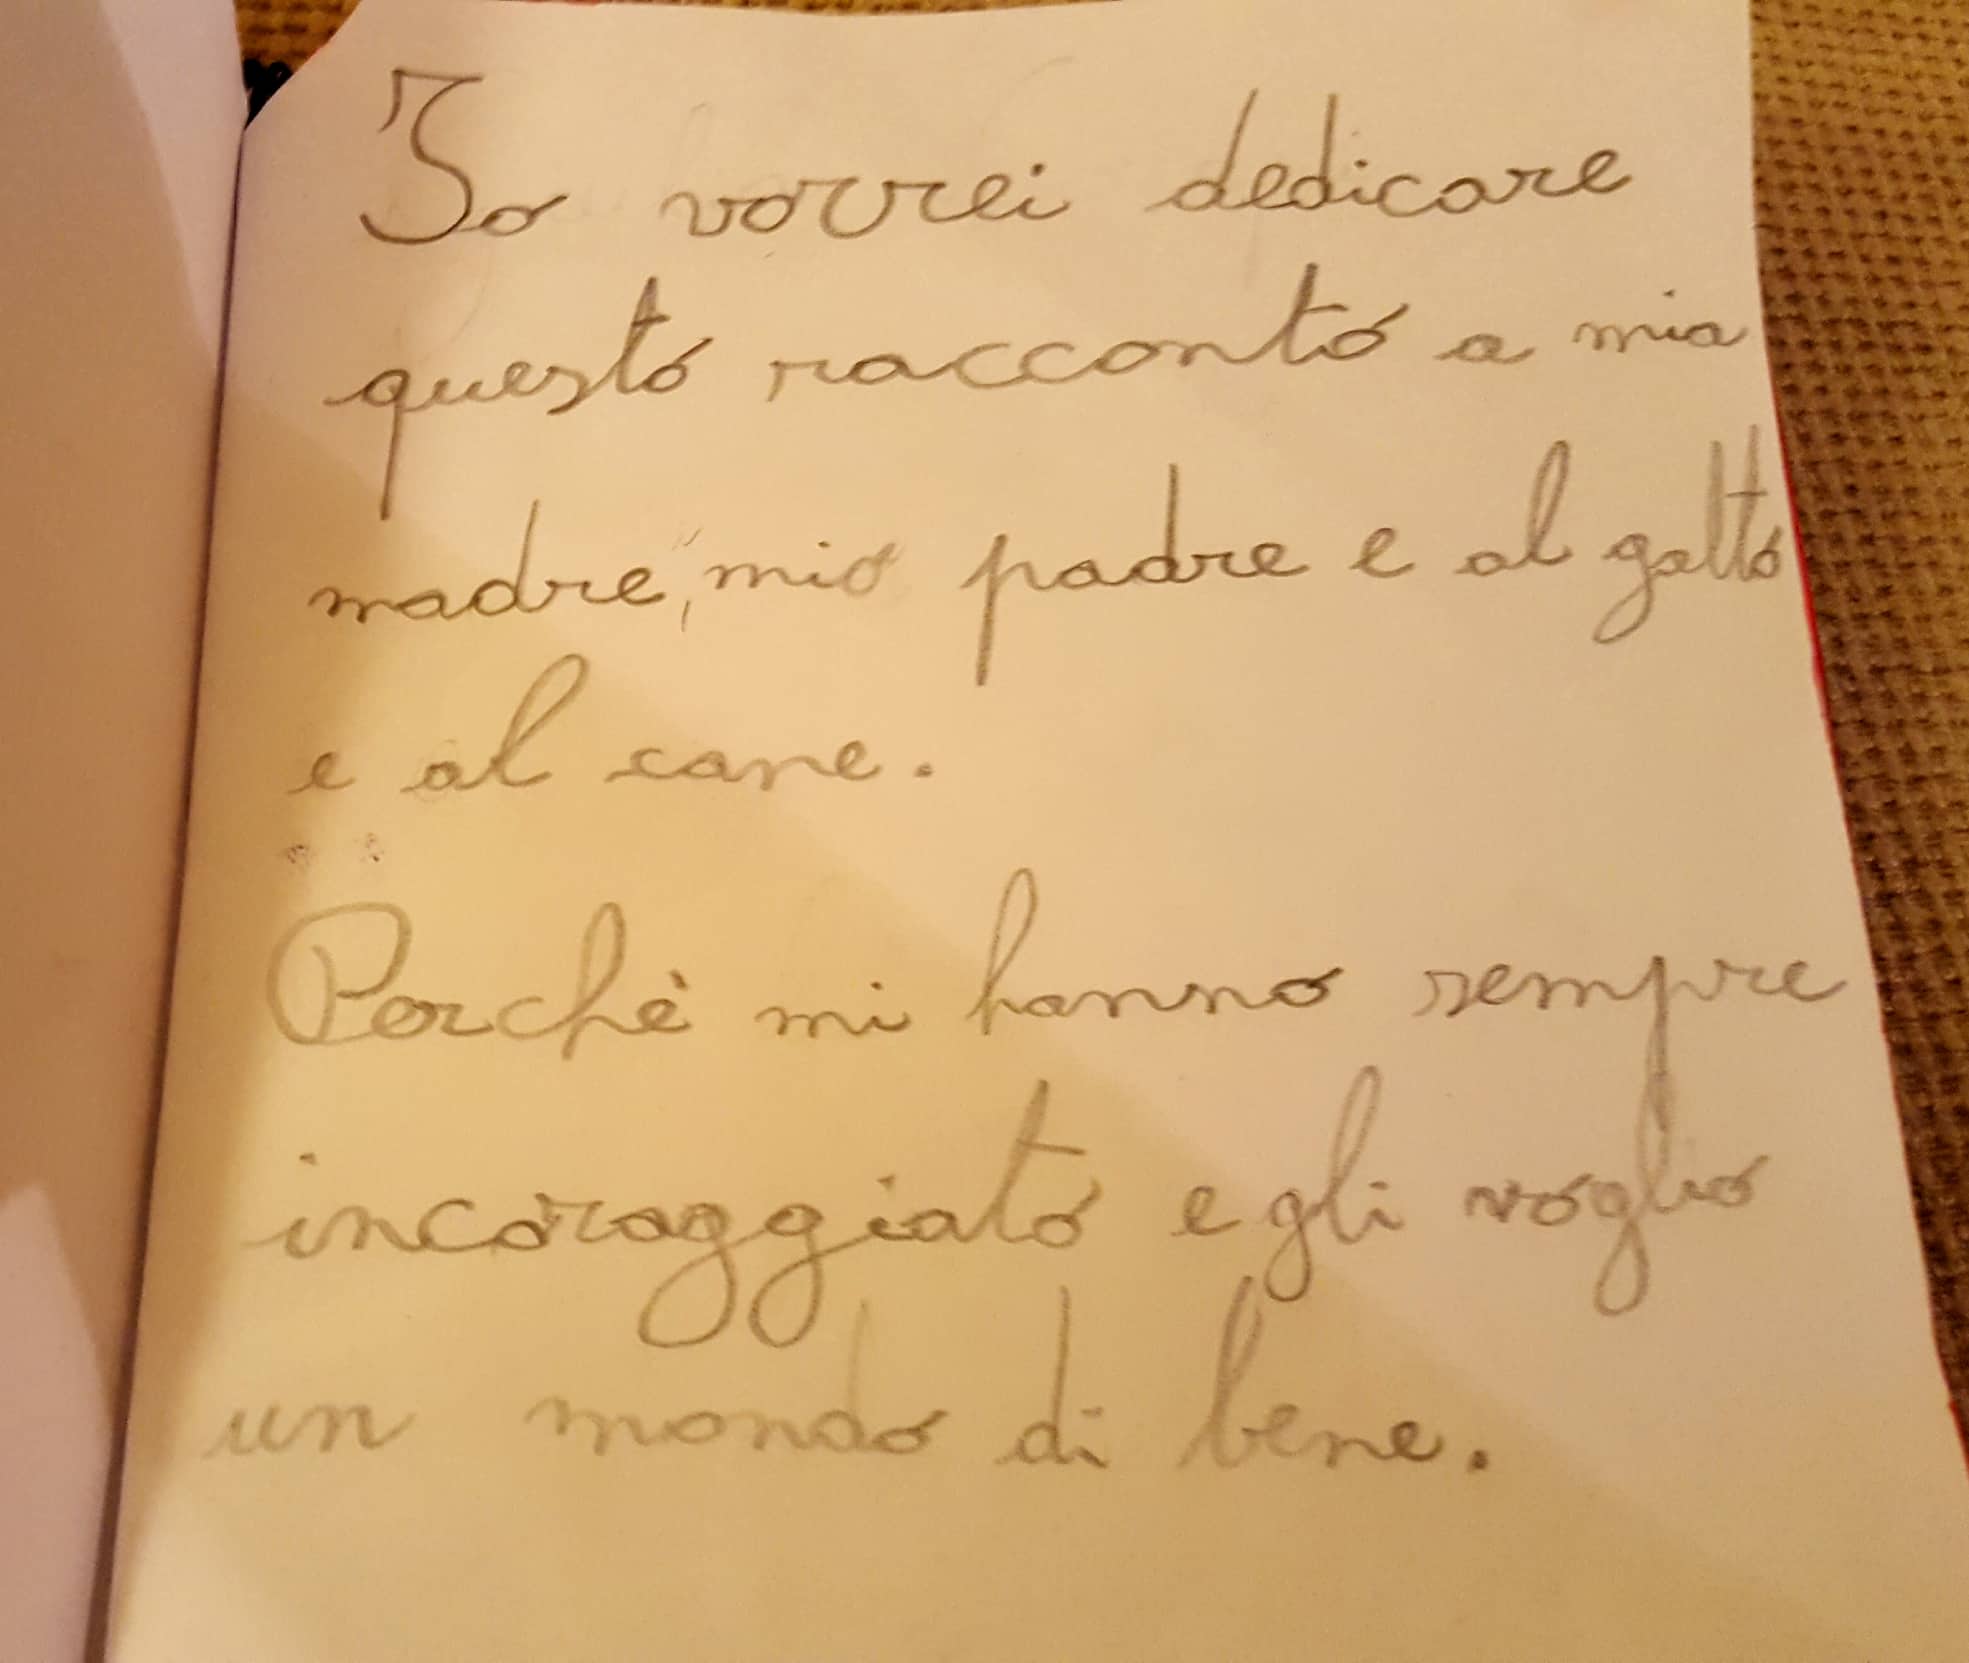 Io vorrei dedicare
questo racconto a mia
madre, mio padre e al gatto
e al cane.
Perchè mi hanno sempre
incoraggiato e gli voglio
un mondo di bene.